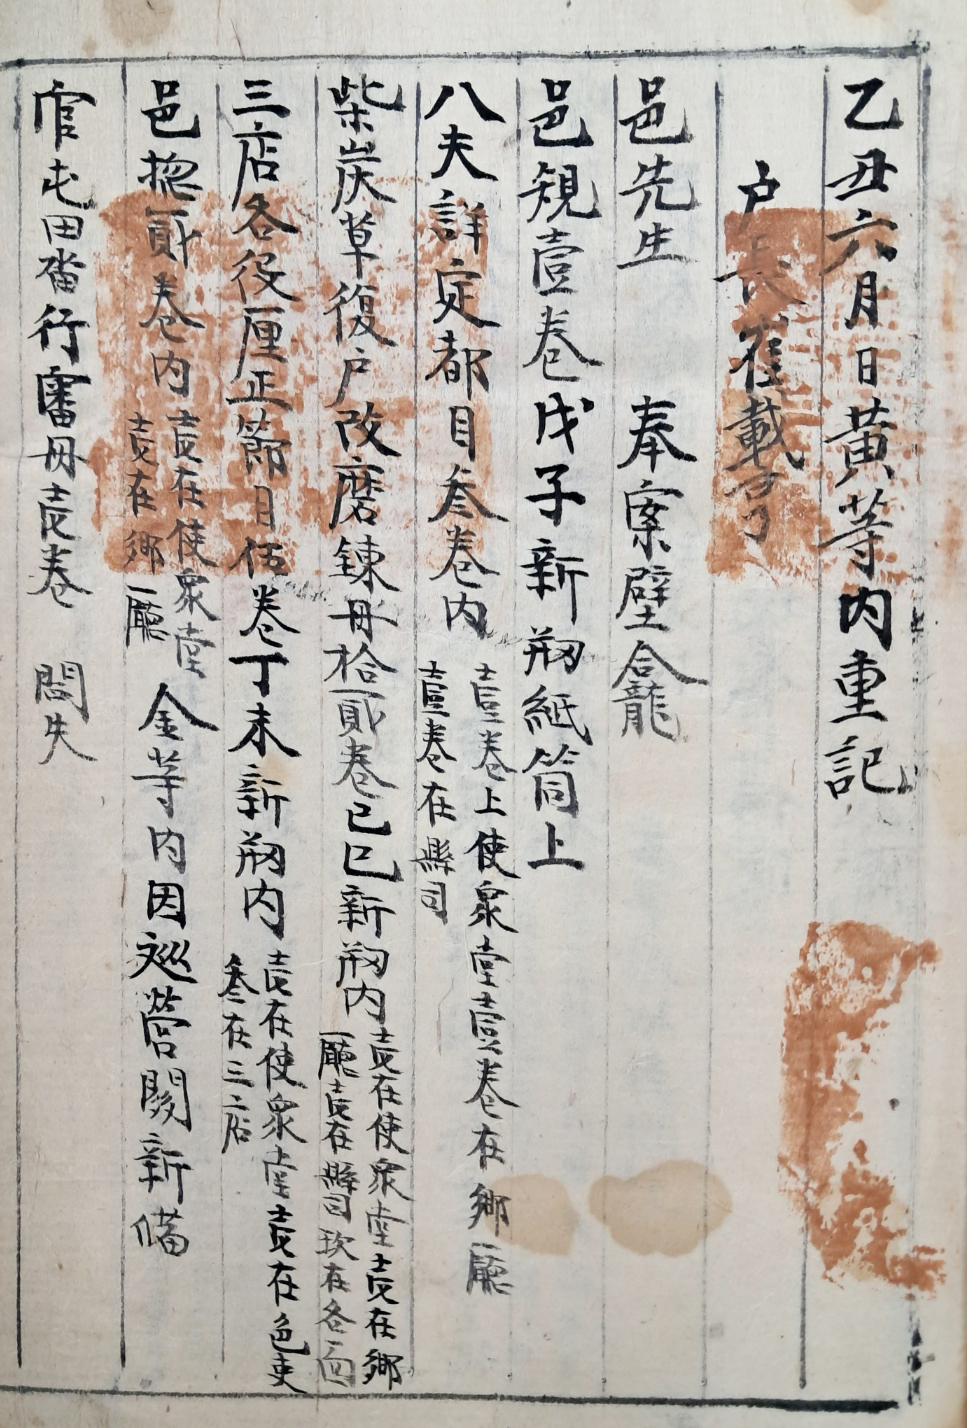 乙丑六月日黃等內重記
戶長崔載
邑先生 奉案壁合龍
邑規壹卷戊子新刱紙筒上
八夫詳定都目叁卷內 壹卷上使衆堂壹卷在鄉廳
壹卷在縣司
柴炭草復戶改磨鍊冊拾貳卷己巳新刱內 壹在使衆堂壹在鄉
廳壹在縣司玖在各面
三店各役厘正節目伍卷丁未新刱內 壹在使衆堂壹在色吏
叁在三店
邑摠貳卷內 壹在使衆堂
壹在鄉廳 金等內因巡營關新備
官屯田畓行審冊壹卷 閪失